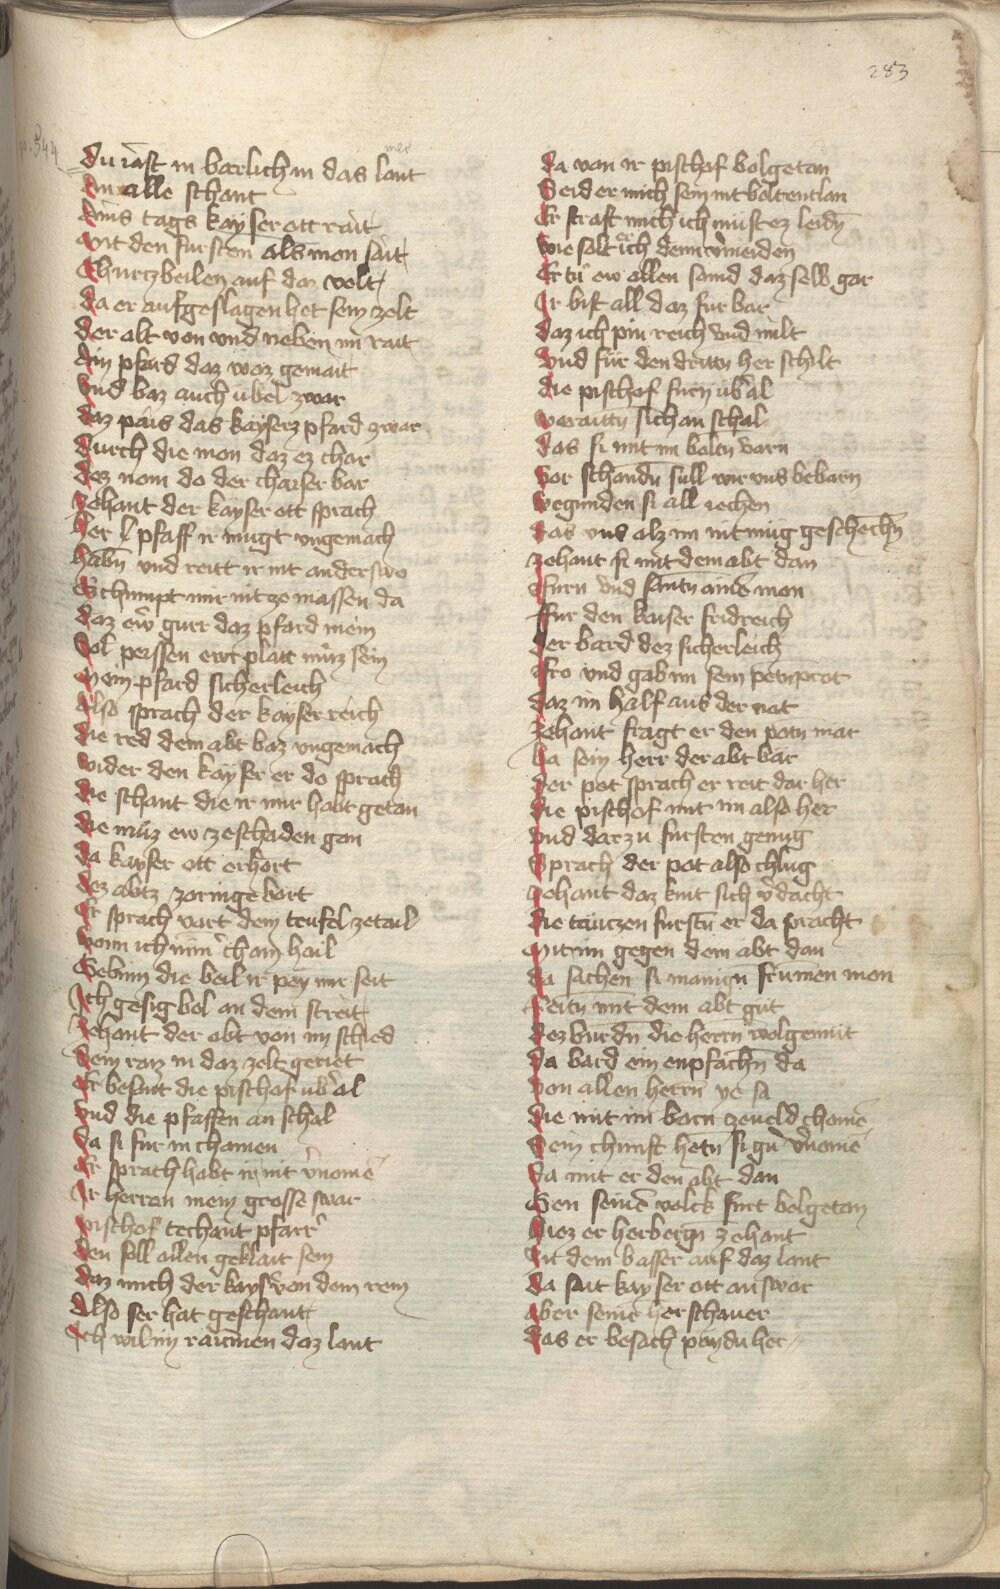 283
p. 344
mer
du rast in barlich in das lant
An alle schant
Ains tags kayser ott rait
mit den fursten als mon sait
Churtzbeilen auf daz velt
da er aufgeslagen het sein zelt
der abt von und neben im rait
Ain pfard daz waz gemait
Und baz auch ubel zwar
daz pais das kaysers pfard zwar
durch die mon daz ez char
dez nom do der chaiser bar
zehant der kayser ott sprach
her pfaff ir mugt ungemach
habn und reitt ir nit anderswo
Schimpt mir nit ze massen da
daz ew gurr daz pfard mein
Sol peissen ewr platt muz sein
mein pfard sicherleich
Also sprach der kayser reich
die red dem abt baz ungemach
wider den kayser er do sprach
die schant die ir mir habt getan
die muz ew ze schaden gan
da kayser ott erhort
dez abtz zoringe bort
Er sprach vart dem teufel zetail
wonn ich nim cham hail
Gebinn die beil ir pey mir seit
Ich gesig bol an dem streit
zehant der abt von im schied
dem raz in daz zelt geriet
Er besant die pischof ubal
und die pfaffen an schal
da si fur in chamen
Er sprach habt ir nit vnome
Ir herren mein grosse swar
pischof techant pfarr
den soll allen geklait sein
daz mich der kays von dem rein
Also ser hat geschant
Ich wil im raumen daz lant
da von ir pischof bolgetan
Seid er mich sein nit bolt entlan
Er straft mich ich must ez leidn
wie solt er ich denn vmeiden
Er tu ew allen samd daz selb gar
Ir bist all daz fur bar
daz ich pin reich und milt
und fur den drittn her schilt
die pischof furn ubal
veraittn sich an schal
das si mit im boltn varn
vor schandn sull wir uns bebarn
begunden si all iechen
das uns alz im nit mug geschechn
zehant si mit dem abt dan
furn und santn aine mon
fur den kaiser fridreich
der bard dez sicherleich
fro und gab im sein petnprot
daz im half aus der not
zehant fragt er den potn mar
ba sein herr der abt bar
der pot sprach er reit dar her
die pischof mit im also her
und dar zu fursten genug
Sprach der pot also chlug
zehant daz kint sich vdacht
die tauczen furstn er da pracht
mit im gegen dem abt dan
da sachen si manign frumen mon
reitn mit dem abt gut
dez burdn die herrn wolgemut
da bard ein enpfachn da
von allen herrn ye sa
die mit im barn ze veld chome
dem chunft hetn si gu vnome
da mit er den abt dan
Gen seine volck furt bolgetan
Hiez er herbergn zehant
Mit dem basser auf daz lant
da sait kayser ott an swar
aber seine her schauer
das er besach payduher